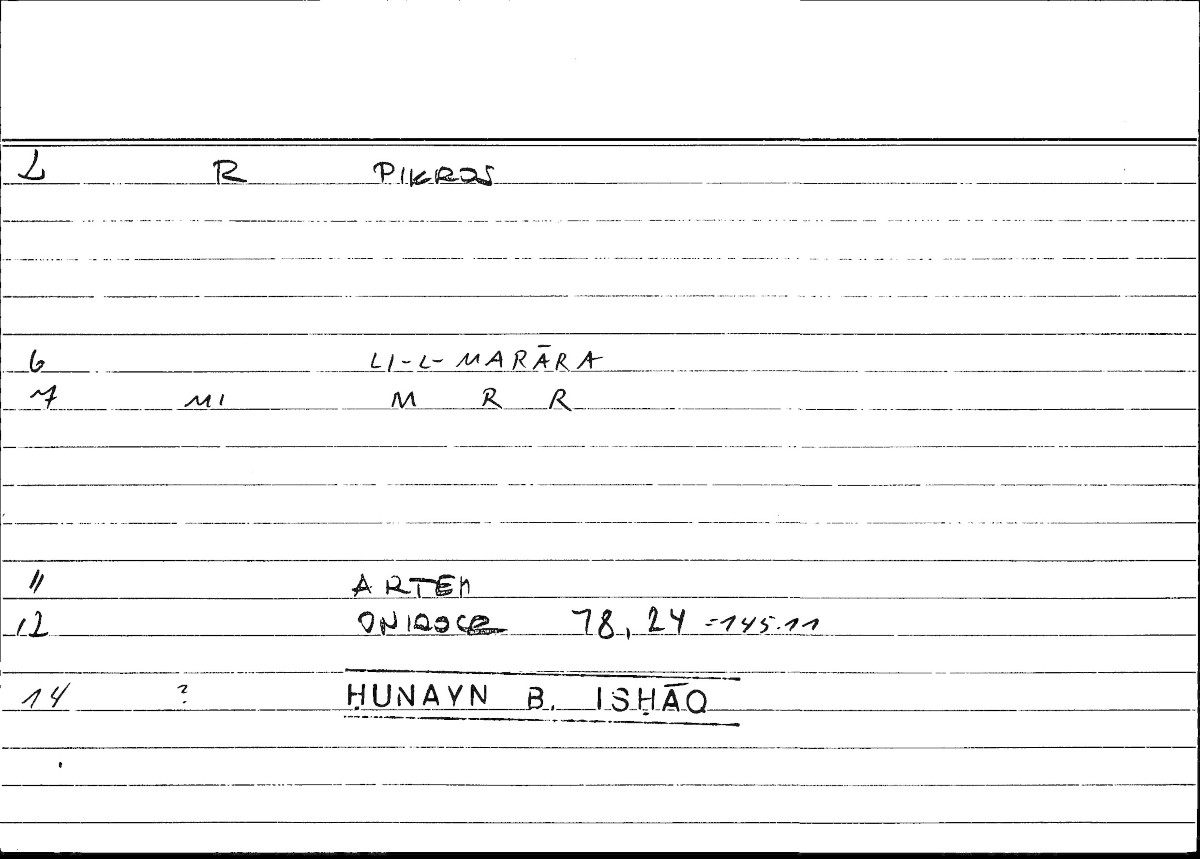 2 R PIKROS
6 LI-L-MARĀRA
7 MI M R R
11 ARTEM
12 ONIROCR 78,24 =145.11
14 ? ḤUNAYN B. ISḤĀQ